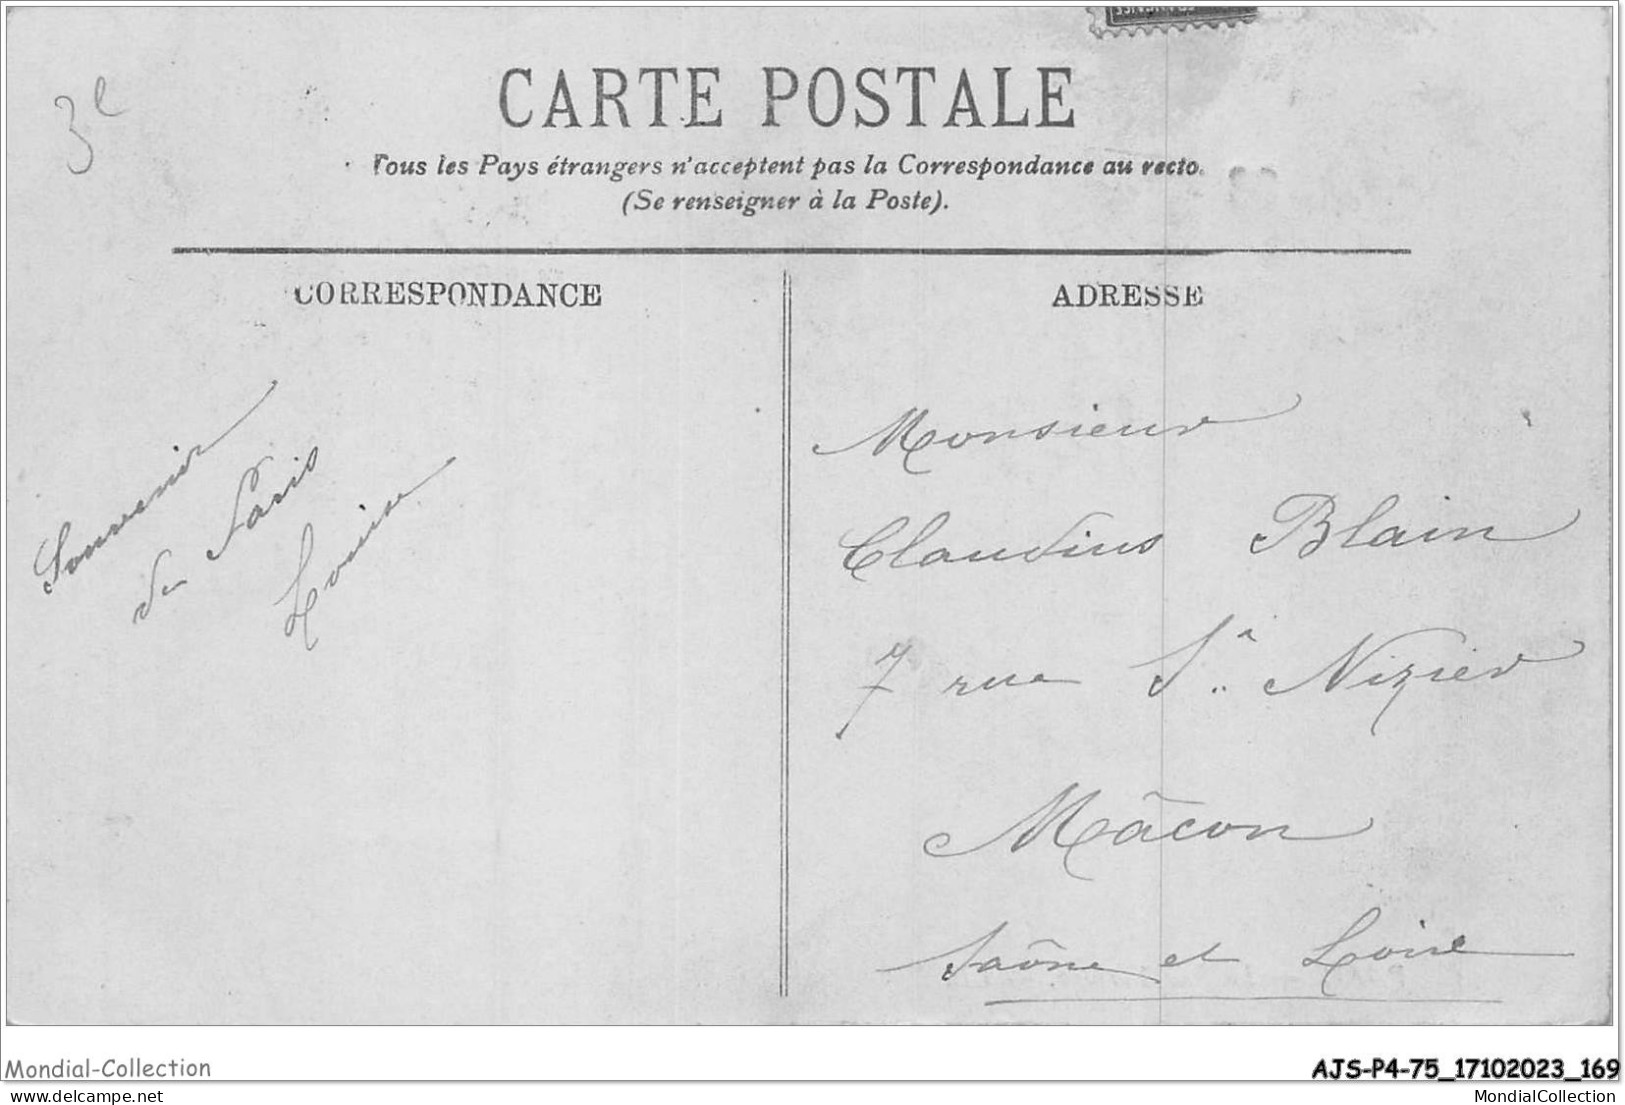 3e
CARTE POSTALE
Tous les Pays étrangers n'acceptent pas la Correspondance au recto.
(Se renseigner à la Poste).
CORRESPONDANCE
Souvenir
de Paris
Louise
ADRESSE
Monsieur
Claudius Blain
7 rue St Nizier
Mâcon
Saône et Loire
Mondial-Collection
AJS-P4-75_17102023_169
www.delcampe.net
MondialCollection